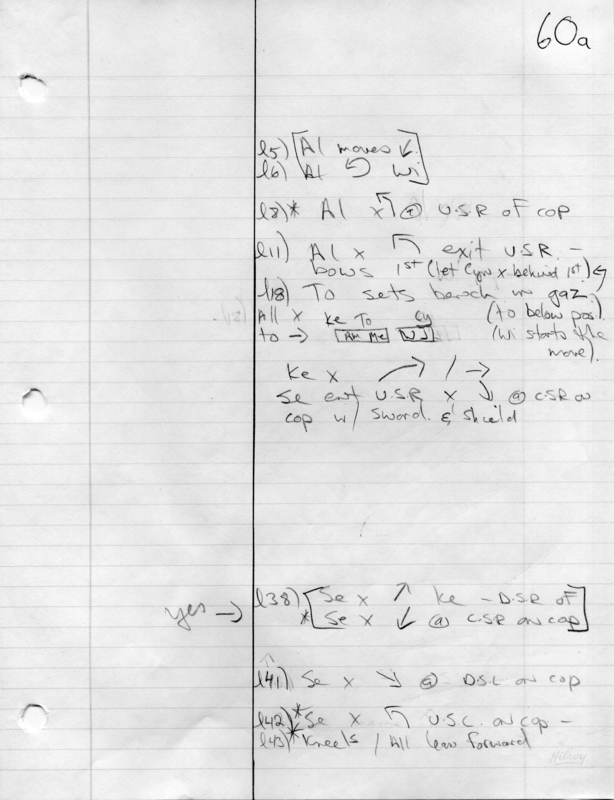 60a
l5) [Al moves ↙.
l6) Al Wi]
l8)* Al x ↰ @ U.S.R of cop
l11) Al x ↰ exit U.S.R. -
bows 1st (let Cym x behind 1st)
l18) To sets bench in gaz.
All x Ke To Cy (to below pos).
to → Am Me WJ (Wi starts the
move).
Ke x ↗ / →
Se ent U.S.R x ↘ @ C.S.R on
cop w/ sword. & shield
yes → l38) [Se x ↗ Ke - D.S.R of
* Se x ↙ @ C.S.R on cop]
l41) Se x ↘ @ D.S.L on cop
l42)* Se x ↰ U.S.C. on cop -
l43)* Kneels / All lean forward
Hilroy